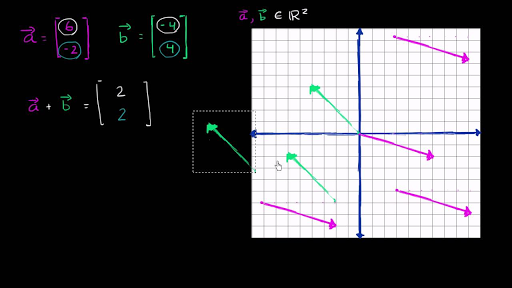 a⃗ = [6 -2] b⃗ = [-4 4] a⃗, b⃗ ∈ ℝ²
a⃗ + b⃗ = [2 2]